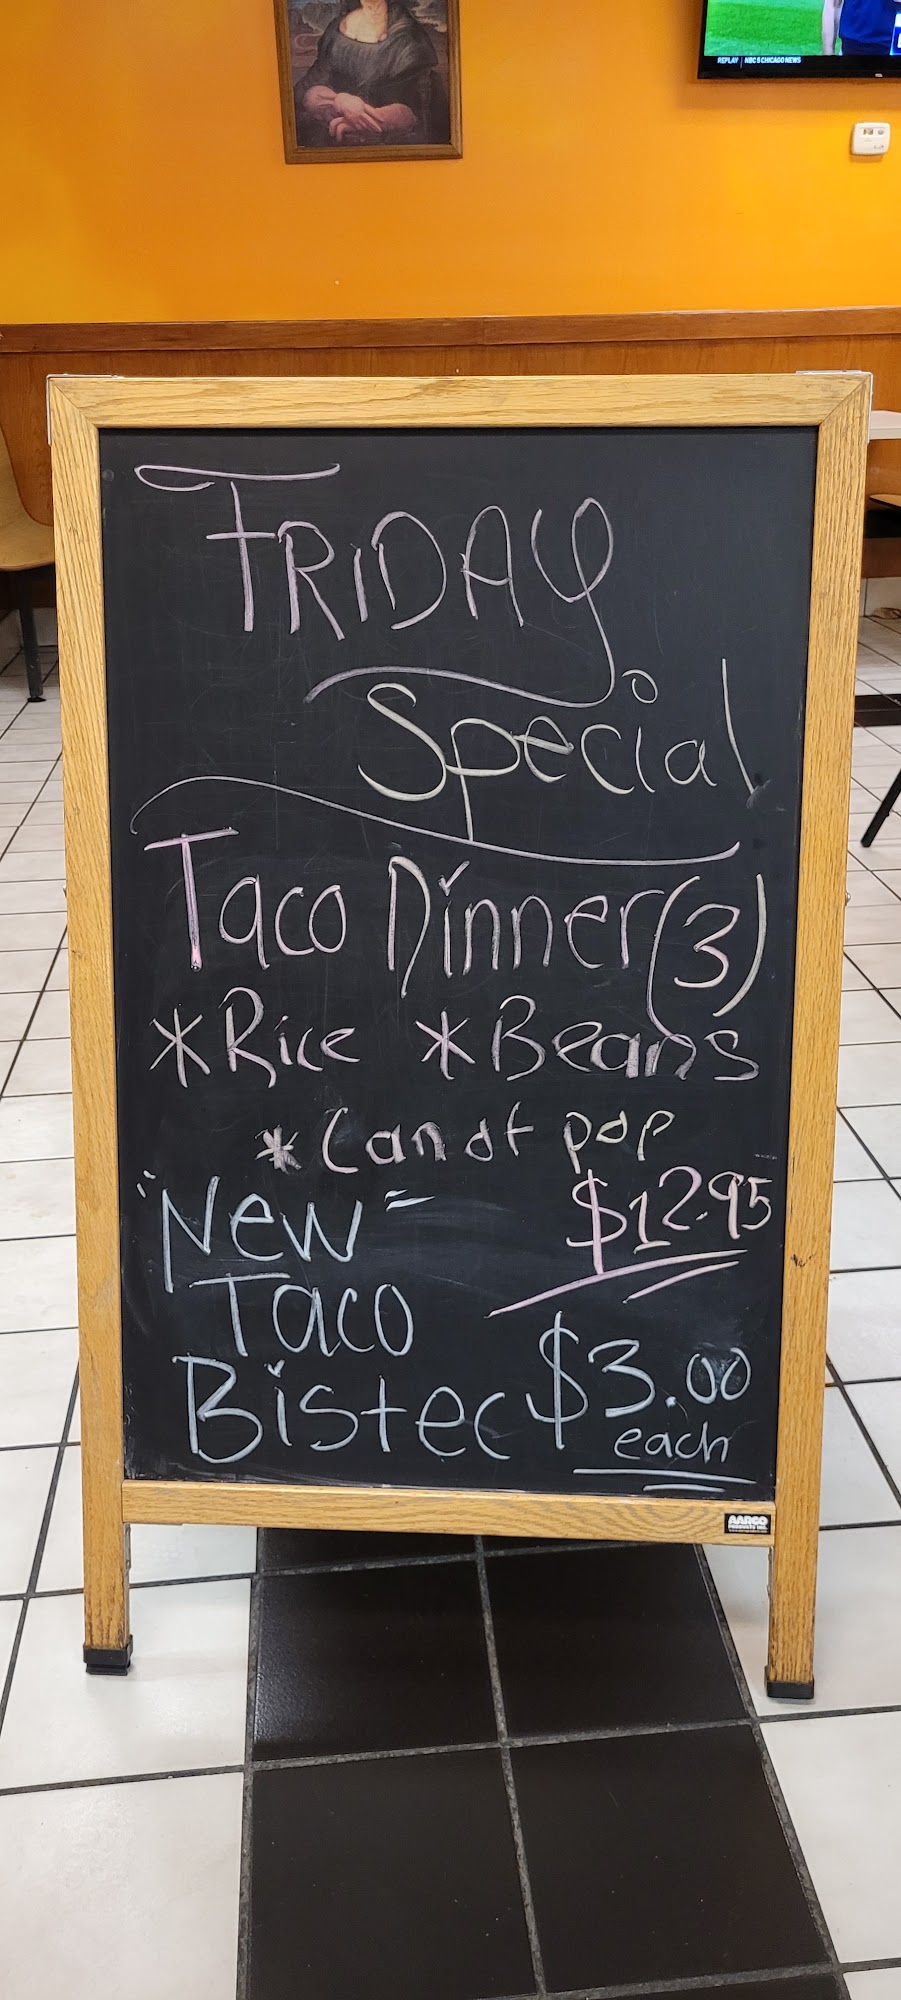 REPLAY | NBC 5 CHICAGO NEWS
FRIDAY
Special
Taco Dinner (3)
*Rice *Beans
*Can of pop
"New" $12.95
Taco
Bistec $3.00
each
AARCO
PRODUCTS INC.